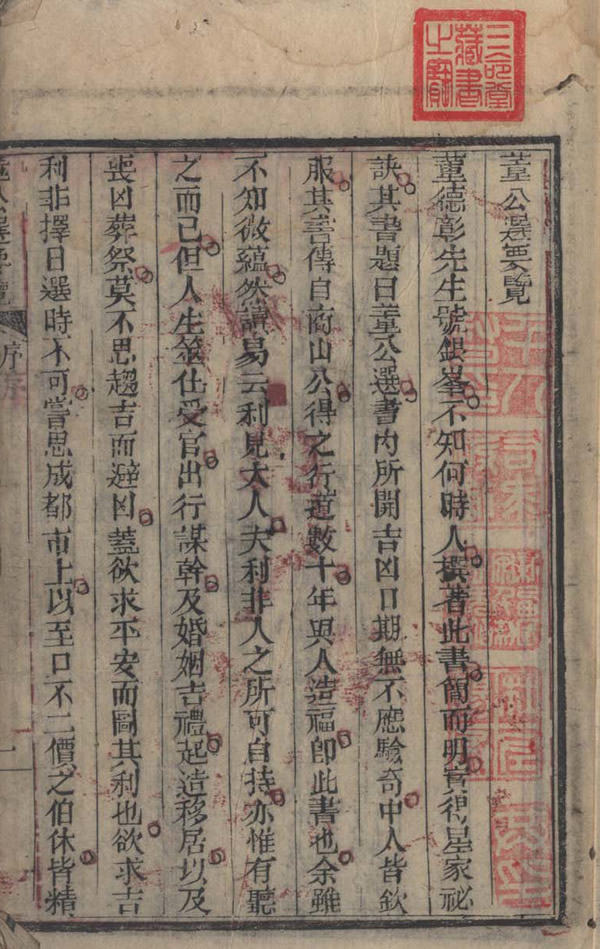 董公選要覽
董德彰先生號銀峯不知何時人撰著此書簡而明實得星家祕
訣其書題曰董公選書内所開吉凶日期無不應驗竒中人皆欽
服其書傳自商山公得之行道數十年與人造福卽此書也余雖
不知微蘊然讀易云利見大人夫利非人之所可自持亦惟有聽
之而已但人生筮仕受官出行謀幹及婚姻吉禮起造移居以及
喪凶葬祭莫不思趨吉而避凶蓋欲求平安而圖其利也欲求吉
利非擇日選時不可嘗思成都市上以至口不二價之伯休皆精
董公選要覽
序
一
三命堂
藏書
之寶